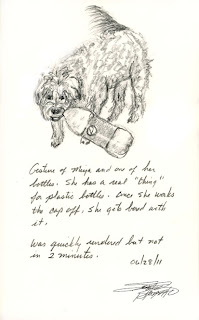 Gesture of Maya and one of her
bottles. She has a real "thing"
for plastic bottles. Once she works
the cap off, she gets bored with
it.
Was quickly rendered but not
in 2 minutes.
06/28/11